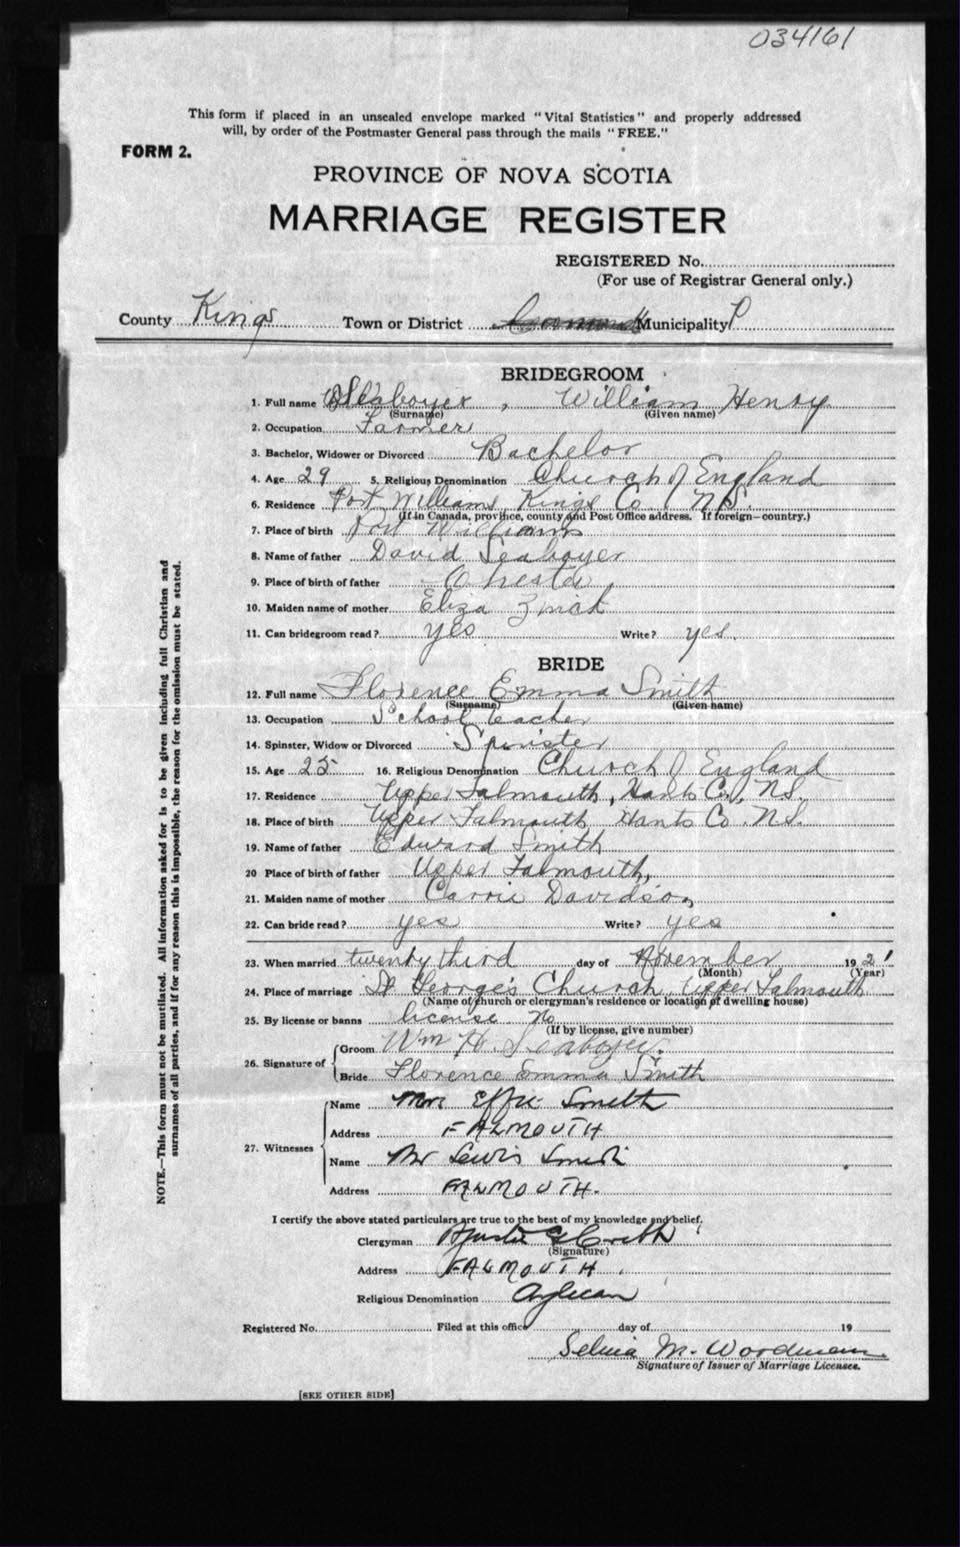 034161
This form if placed in an unsealed envelope marked "Vital Statistics" and properly addressed
will, by order of the Postmaster General pass through the mails "FREE."
FORM 2.
PROVINCE OF NOVA SCOTIA
MARRIAGE REGISTER
REGISTERED No.
(For use of Registrar General only.)
County Kings Town or District Municipality
BRIDEGROOM
1. Full name Seaboyer, William Henry
(Surname) (Given name)
2. Occupation Farmer
3. Bachelor, Widower or Divorced Bachelor
4. Age 29 5. Religious Denomination Church of England
6. Residence Port Williams, Kings Co., N.S.
(If in Canada, province, county and Post Office address. If foreign—country.)
7. Place of birth Port Williams
8. Name of father David Seaboyer
9. Place of birth of father Chester
10. Maiden name of mother Eliza Zinck
11. Can bridegroom read? yes Write? yes.
BRIDE
12. Full name Florence Emma Smith
(Surname) (Given name)
13. Occupation School teacher
14. Spinster, Widow or Divorced Spinster
15. Age 25 16. Religious Denomination Church of England
17. Residence Upper Falmouth, Hants Co., N.S.
18. Place of birth Upper Falmouth Hants Co. N.S.
19. Name of father Edward Smith
20 Place of birth of father Upper Falmouth,
21. Maiden name of mother Carrie Davidson
22. Can bride read? yes Write? yes
23. When married twenty third day of November 1921
(Month) (Year)
24. Place of marriage St George's Church, Upper Falmouth
(Name of church or clergyman's residence or location of dwelling house)
25. By license or banns license No
(If by license, give number)
26. Signature of
Groom Wm H. Seaboyer.
Bride Florence Emma Smith
27. Witnesses
Name Mrs Effie Smith
Address FALMOUTH
Name Mr Lewis Smith
Address FALMOUTH.
I certify the above stated particulars are true to the best of my knowledge and belief,
Clergyman
(Signature)
Address FALMOUTH.
Religious Denomination Anglican
Registered No. Filed at this office day of 19
Selma M. Woodman
Signature of Issuer of Marriage Licenses.
[SEE OTHER SIDE]
NOTE.—This form must not be mutilated. All information asked for is to be given including full Christian and
surnames of all parties, and if for any reason this is impossible, the reason for the omission must be stated.